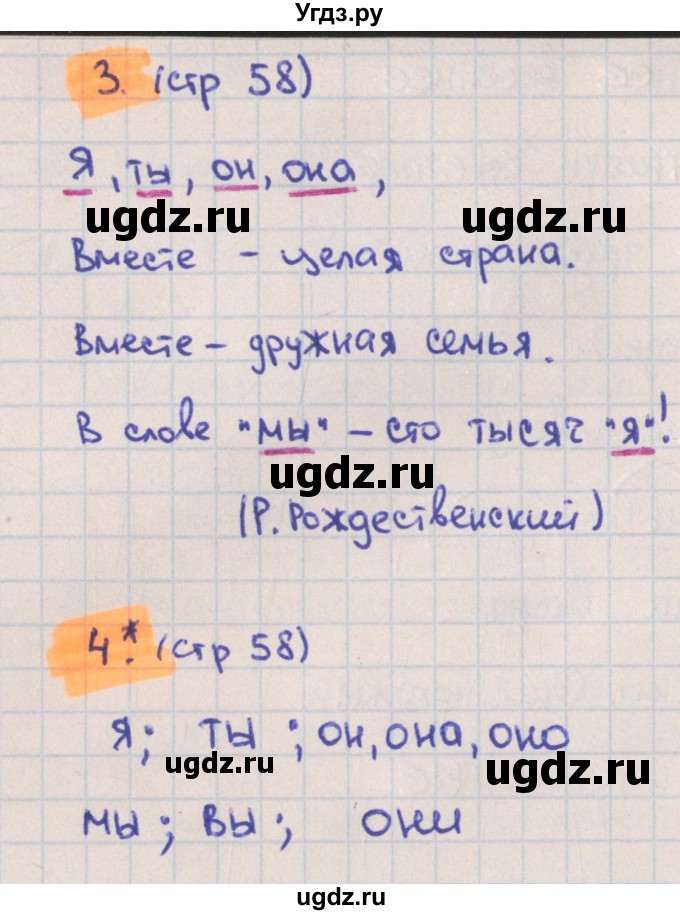 Угдз.ру
3. (стр 58)
Я, ты, он, она,
ugdz.ru ugdz.ru
Вместе - целая страна.
Вместе - дружная семья.
В слове "мы" - сто тысяч "я"!
ugdz.ru
(Р. Рождественский)
4*. (стр 58)
Я; ты; он, она, оно
ugdz.ru ugdz.ru
мы; вы; они
ugdz.ru